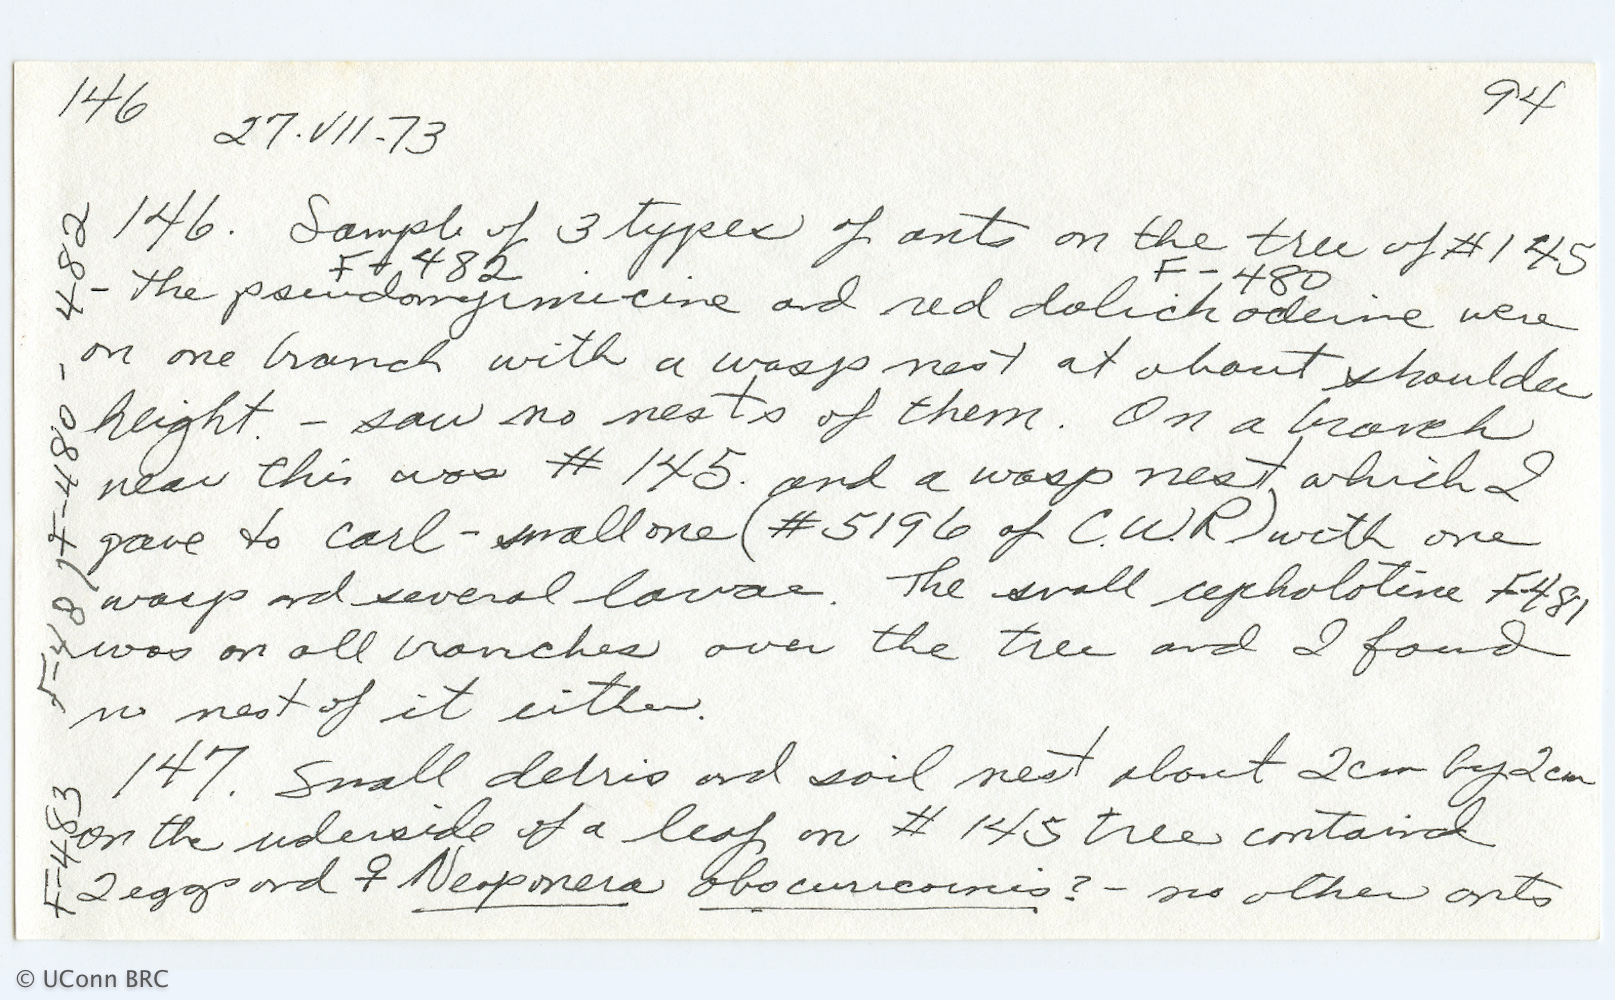 146
94
27.VII-73
146. Sample of 3 types of ants on the tree of #145
F-482 F-480
- The pseudomyrmicine and red dolichoderine were
on one branch with a wasp nest at about shoulder
height. - saw no nests of them. On a branch
near this was # 145. and a wasp nest, which I
gave to Carl - small one (#5196 of C.W.R.) with one
wasp and several larvae. The small cephalotine F-481
was on all branches over the tree and I found
no nest of it either.
147. Small debris and soil nest about 2cm by 2cm
on the uderside of a leaf on # 145 tree contained
2 eggs and ♀ Neoponera obscuricornis? - no other ants
F-481, F-480 - 482
F-483
© UConn BRC